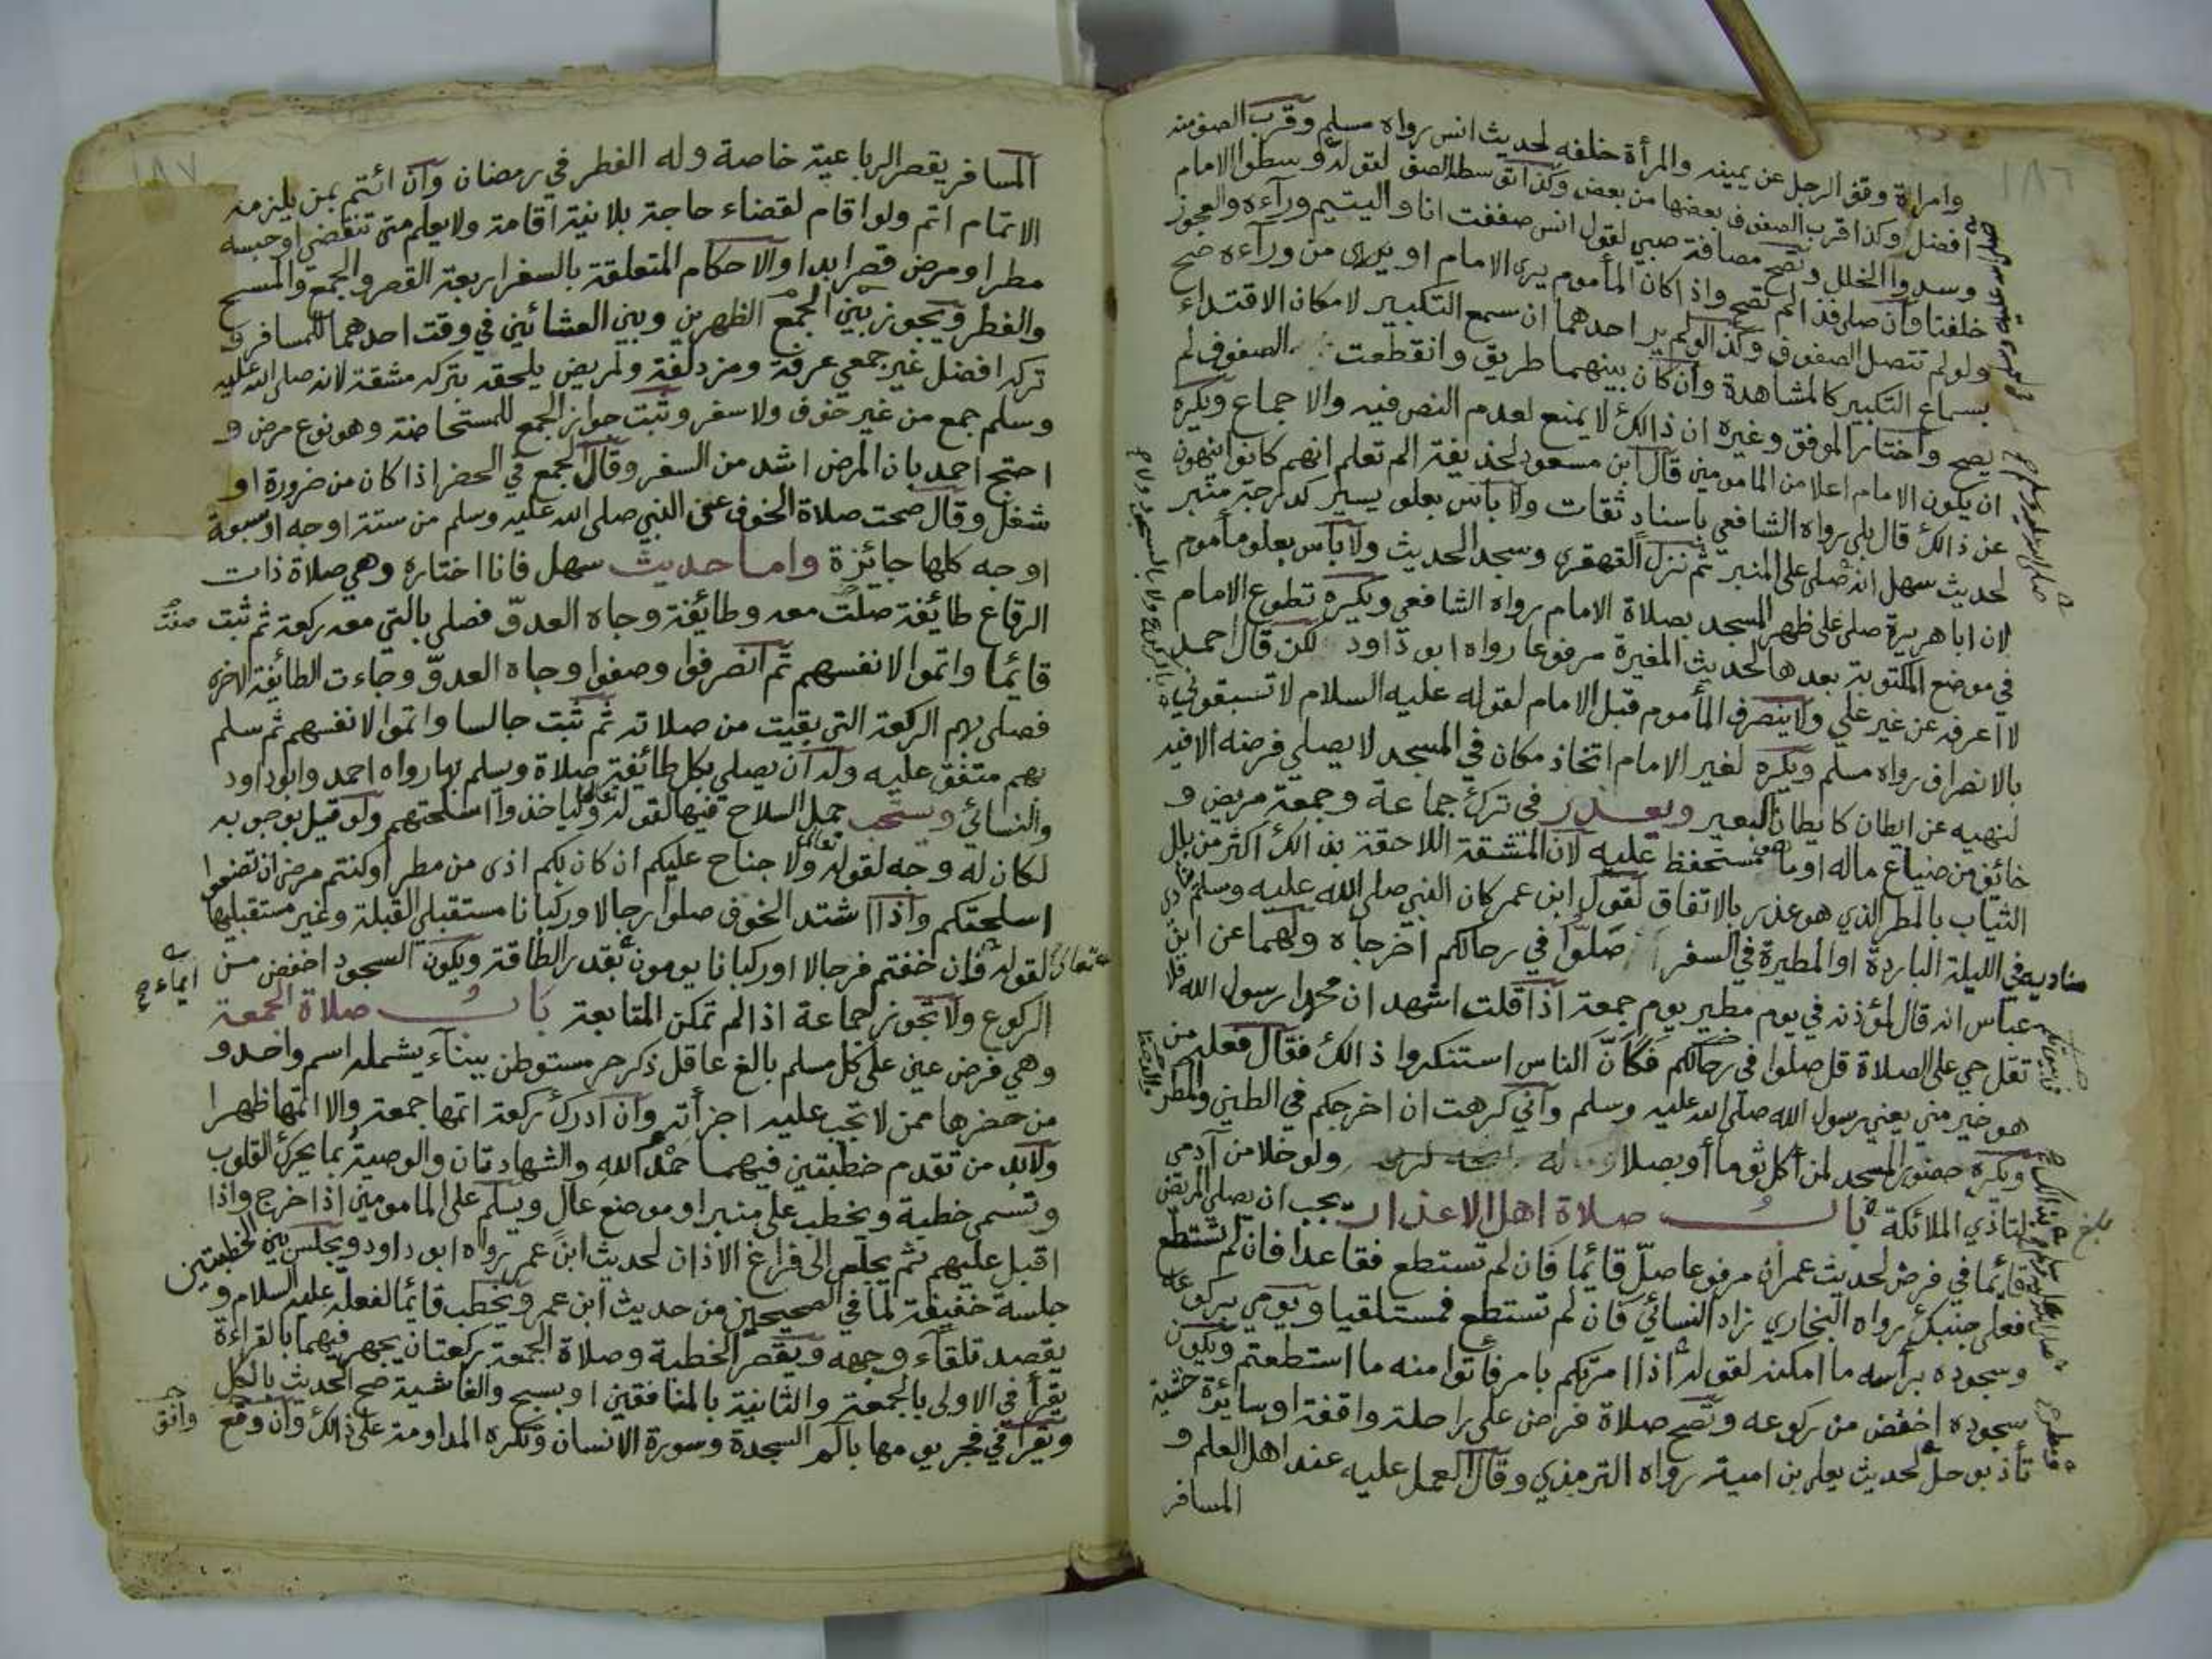 ١٨٦
وامراة وقف الرجل عن يمينه والمرأة خلفه لحديث انس رواه مسلم وقرب الصف منه
افضل وكذا قرب الصفوف بعضها من بعض وكذا توسطه الصف لقوله وسطوا الامام
وسدوا الخلل وتصح مصافة صبي لقول انس صففت انا واليتيم ورآءه والعجوز
خلفنا وان صلى فذا لم تصح واذا كان المأموم يرى الامام او يرى من ورآءه صح
ولو لم تتصل الصفوف وكذا لو لم ير احدهما ان سمع التكبير لامكان الاقتداء
بسماع التكبير كالمشاهدة وان كان بينهما طريق وانقطعت الصفوف لم
يصح واختار الموفق وغيره ان ذالك لا يمنع لعدم النص فيه والاجماع ويكره
ان يكون الامام اعلا من المامومين قال ابن مسعود لحذيفة الم تعلم انهم كانوا ينهون
عن ذالك قال بلى رواه الشافعي باسناد ثقات ولا بأس بعلو يسير كدرجة منبر
لحديث سهل انه صلى على المنبر ثم نزل القهقرى وسجد الحديث ولا بأس بعلو مأموم
لان ابا هريرة صلى على ظهر المسجد بصلاة الامام رواه الشافعي ويكره تطوع الامام
في موضع المكتوبة بعدها لحديث المغيرة مرفوعا رواه ابو داود لكن قال احمد
لا اعرفه عن غير علي ولا ينصرف المأموم قبل الامام لقوله عليه السلام لا تسبقوني
بالانصراف رواه مسلم ويكره لغير الامام اتخاذ مكان في المسجد لا يصلي فرضه الا فيه
لنهيه عن ايطان كايطان البعير ويعذر في ترك جماعة وجمعة مريض و
خائف من ضياع ماله او ما هو مستحفظ عليه لان المشقة اللاحقة بذالك اكثر من بلل
الثياب بالمطر الذي هو عذر بالاتفاق لقول ابن عمر كان النبي صلى الله عليه وسلم ينادي
مناديه في الليلة الباردة او المطيرة في السفر صلوا في رحالكم اخرجاه ولهما عن ابن
عباس انه قال لمؤذنه في يوم مطير يوم جمعة اذا قلت اشهد ان محمدا رسول الله فلا
تقل حي على الصلاة قل صلوا في رحالكم فكأن الناس استنكروا ذالك فقال فعله من
هو خير مني يعني رسول الله صلى الله عليه وسلم وآني كرهت ان اخرجكم في الطين والمطر
ويكره حضور المسجد لمن أكل ثوما أو بصلا ولو خلا من آدمي
لتاذي الملائكة باب صلاة اهل الاعذار يجب ان يصلي المريض
قائما في فرض لحديث عمران مرفوعا صلّ قائما فان لم تستطع فقاعدا فان لم تستطع
فعلى جنبك رواه البخاري زاد النسائي فان لم تستطع فمستلقيا ويومي بركوعه
وسجوده برأسه ما امكنه لقوله اذا امرتكم بامر فأتوا منه ما استطعتم ويكون
سجوده اخفض من ركوعه وتصح صلاة فرض على راحلة واقفة او سائرة خشية
تأذ بوحل لحديث يعلى بن امية رواه الترمذي وقال العمل عليه عند اهل العلم و
المسافر
صلى الله عليه وسلم
بلغ
١٨٧
المسافر يقصر الرباعية خاصة وله الفطر في رمضان وان ائتم بمن يلزمه
الاتمام اتم ولو اقام لقضاء حاجة بلا نية اقامة ولا يعلم متى تنقضي او حبسه
مطر او مرض قصر ابدا والاحكام المتعلقة بالسفر اربعة القصر والجمع والمسح
والفطر ويجوز الجمع بين الظهرين وبين العشائين في وقت احدهما للمسافر و
تركه افضل غير جمعي عرفة ومزدلفة ولمريض يلحقه بتركه مشقة لانه صلى الله عليه
وسلم جمع من غير خوف ولا سفر وثبت جواز الجمع للمستحاضة وهو نوع مرض و
احتج احمد بان المرض اشد من السفر وقال الجمع في الحضر اذا كان من ضرورة او
شغل وقال صحت صلاة الخوف عن النبي صلى الله عليه وسلم من ستة اوجه او سبعة
اوجه كلها جائزة واما حديث سهل فانا اختاره وهي صلاة ذات
الرقاع طائفة صلت معه وطائفة وجاه العدوّ فصلى بالتي معه ركعة ثم ثبت
قائما واتموا لانفسهم ثم انصرفوا وصفوا وجاه العدوّ وجاءت الطائفة الاخرى
فصلى بهم الركعة التي بقيت من صلاته ثم ثبت جالسا واتموا لانفسهم ثم سلم
بهم متفق عليه وله ان يصلي بكل طائفة صلاة ويسلم بها رواه احمد وابو داود
والنسائي ويستحب حمل السلاح فيها لقوله تعالى ولياخذوا اسلحتهم ولو قيل بوجوبه
لكان له وجه لقوله تعالى ولا جناح عليكم ان كان بكم اذى من مطر او كنتم مرضى ان تضعوا
اسلحتكم واذا اشتد الخوف صلوا رجالا وركبانا مستقبلي القبلة وغير مستقبليها
لقوله تعالى فان خفتم فرجالا او ركبانا يومون بقدر الطاقة ويكون السجود اخفض من
الركوع ولا تجوز جماعة اذا لم تمكن المتابعة باب صلاة الجمعة
وهي فرض عين على كل مسلم بالغ عاقل ذكر حر مستوطن ببناء يشمله اسم واحد و
من حضرها ممن لا تجب عليه اجزأته وان ادرك ركعة اتمها جمعة والا اتمها ظهرا
ولابد من تقدم خطبتين فيهما حمد الله والشهادتان والوصية بما يحرك القلوب
وتسمى خطبة ويخطب على منبر او موضع عال ويسلم على المامومين اذا خرج واذا
اقبل عليهم ثم يجلس الى فراغ الاذان لحديث ابن عمر رواه ابو داود ويجلس بين الخطبتين
جلسة خفيفة لما في الصحيحين من حديث ابن عمر ويخطب قائما لفعله عليه السلام و
يقصد تلقاء وجهه ويقصر الخطبة وصلاة الجمعة ركعتان يجهر فيهما بالقراءة
يقرأ في الاولى بالجمعة والثانية بالمنافقين او بسبح والغاشية صح الحديث بالكل
ويقرأ في فجر يومها بآلم السجدة وسورة الانسان وتكره المداومة على ذالك وان وقع
وافق